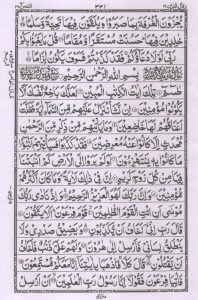 وقال الذين ١٩ ٤٤١ الشعراء ٢٦
يُجْزَوْنَ الْغُرْفَةَ بِمَا صَبَرُوْا وَيُلَقَّوْنَ فِيْهَا تَحِيَّةً وَّسَلٰمًا
خٰلِدِيْنَ فِيْهَا حَسُنَتْ مُسْتَقَرًّا وَّمُقَامًا قُلْ مَا يَعْبَؤُا بِكُمْ
رَبِّيْ لَوْلَا دُعَآؤُكُمْ فَقَدْ كَذَّبْتُمْ فَسَوْفَ يَكُوْنُ لِزَامًا
بِسْمِ اللّٰهِ الرَّحْمٰنِ الرَّحِيْمِ
طٰسٓمّٓ تِلْكَ اٰيٰتُ الْكِتٰبِ الْمُبِيْنِ لَعَلَّكَ بَاخِعٌ نَّفْسَكَ اَلَّا
يَكُوْنُوْا مُؤْمِنِيْنَ اِنْ نَّشَاْ نُنَزِّلْ عَلَيْهِمْ مِّنَ السَّمَآءِ اٰيَةً فَظَلَّتْ
اَعْنَاقُهُمْ لَهَا خٰضِعِيْنَ وَمَا يَاْتِيْهِمْ مِّنْ ذِكْرٍ مِّنَ الرَّحْمٰنِ
مُحْدَثٍ اِلَّا كَانُوْا عَنْهُ مُعْرِضِيْنَ فَقَدْ كَذَّبُوْا فَسَيَاْتِيْهِمْ اَنْۢبٰٓؤُا مَا
كَانُوْا بِهٖ يَسْتَهْزِءُوْنَ اَوَلَمْ يَرَوْا اِلَى الْاَرْضِ كَمْ اَنْۢبَتْنَا فِيْهَا
مِنْ كُلِّ زَوْجٍ كَرِيْمٍ اِنَّ فِيْ ذٰلِكَ لَاٰيَةً وَمَا كَانَ اَكْثَرُهُمْ
مُّؤْمِنِيْنَ وَاِنَّ رَبَّكَ لَهُوَ الْعَزِيْزُ الرَّحِيْمُ وَاِذْ نَادٰى رَبُّكَ
مُوْسٰٓى اَنِ ائْتِ الْقَوْمَ الظّٰلِمِيْنَ قَوْمَ فِرْعَوْنَ اَلَا يَتَّقُوْنَ
قَالَ رَبِّ اِنِّيْٓ اَخَافُ اَنْ يُّكَذِّبُوْنِ وَيَضِيْقُ صَدْرِيْ وَلَا
يَنْطَلِقُ لِسَانِيْ فَاَرْسِلْ اِلٰى هٰرُوْنَ وَلَهُمْ عَلَيَّ ذَنْۢبٌ فَاَخَافُ
اَنْ يَّقْتُلُوْنِ قَالَ كَلَّا فَاذْهَبَا بِاٰيٰتِنَآ اِنَّا مَعَكُمْ مُّسْتَمِعُوْنَ
فَاْتِيَا فِرْعَوْنَ فَقُوْلَآ اِنَّا رَسُوْلُ رَبِّ الْعٰلَمِيْنَ اَنْ اَرْسِلْ